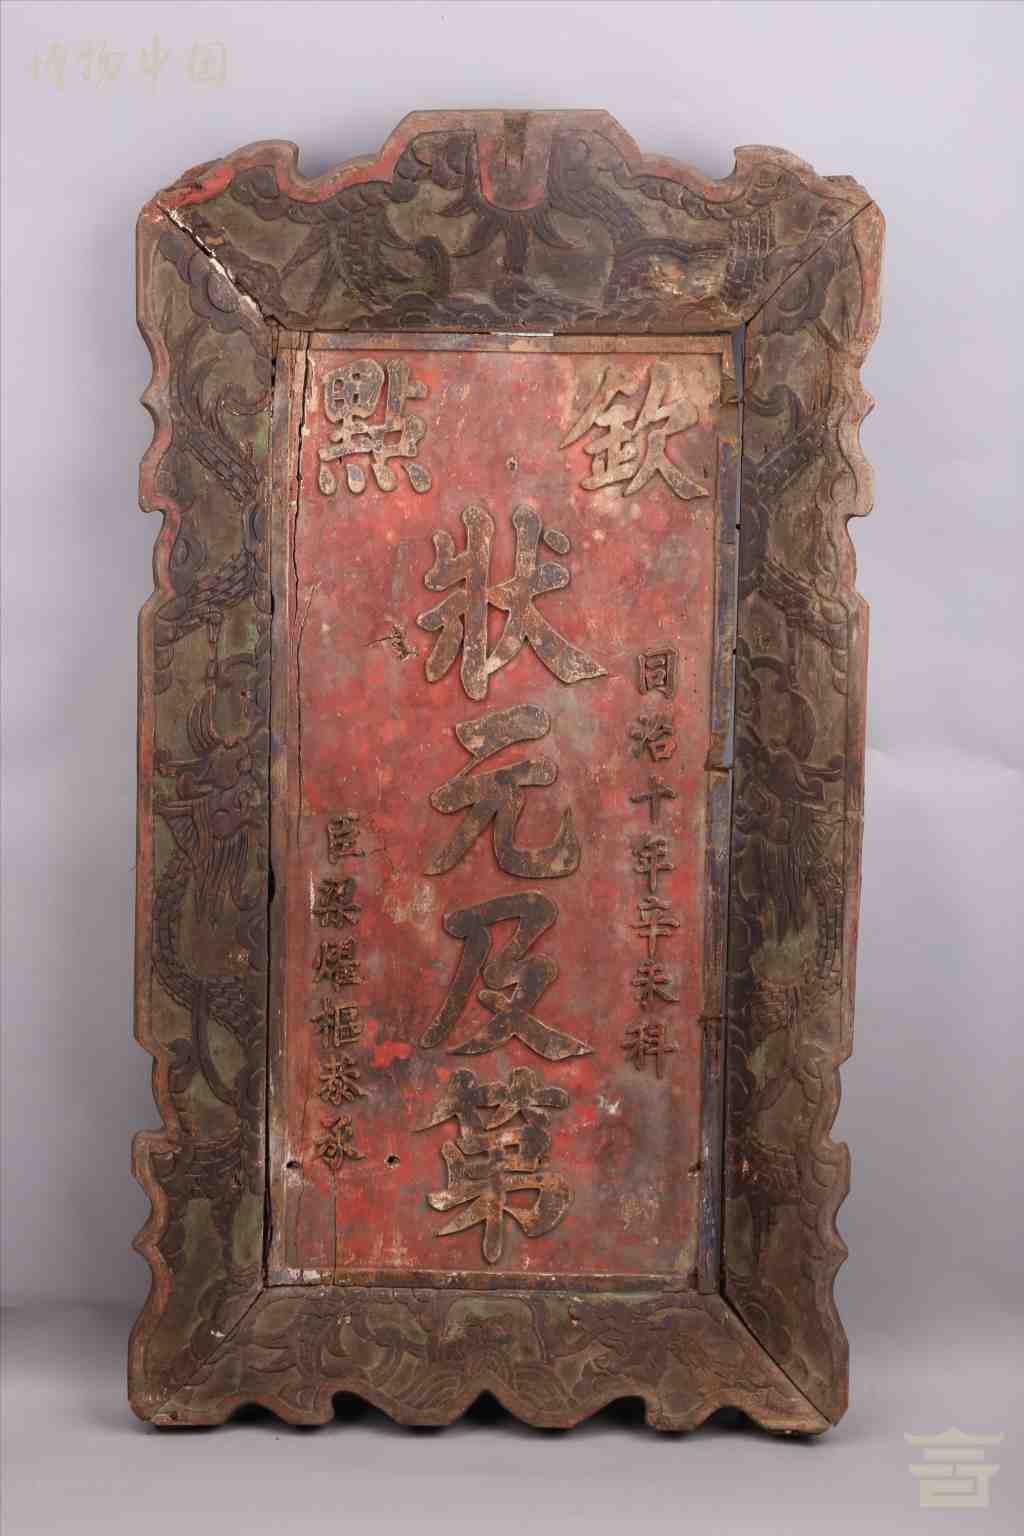 博物中国
欽點
同治十年辛未科
狀元及第
臣梁燿樞恭承